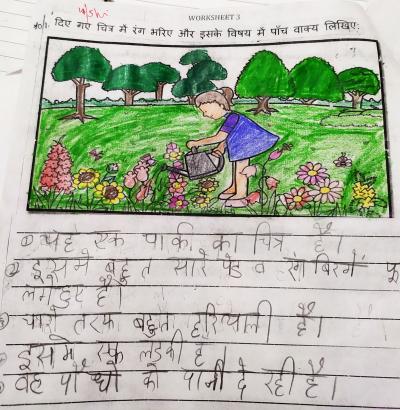 WORKSHEET 3
दिए गए चित्र में रंग भरिए और इसके विषय में पाँच वाक्य लिखिए:
① यह एक पार्क का चित्र है।
② इसमें बहुत सारे पेड़ व रंग बिरंगे फू
लगे हुए हैं।
③ चारों तरफ बहुत हरियाली है।
इसमें एक लड़की है।
वह पौधों को पानी दे रही है।